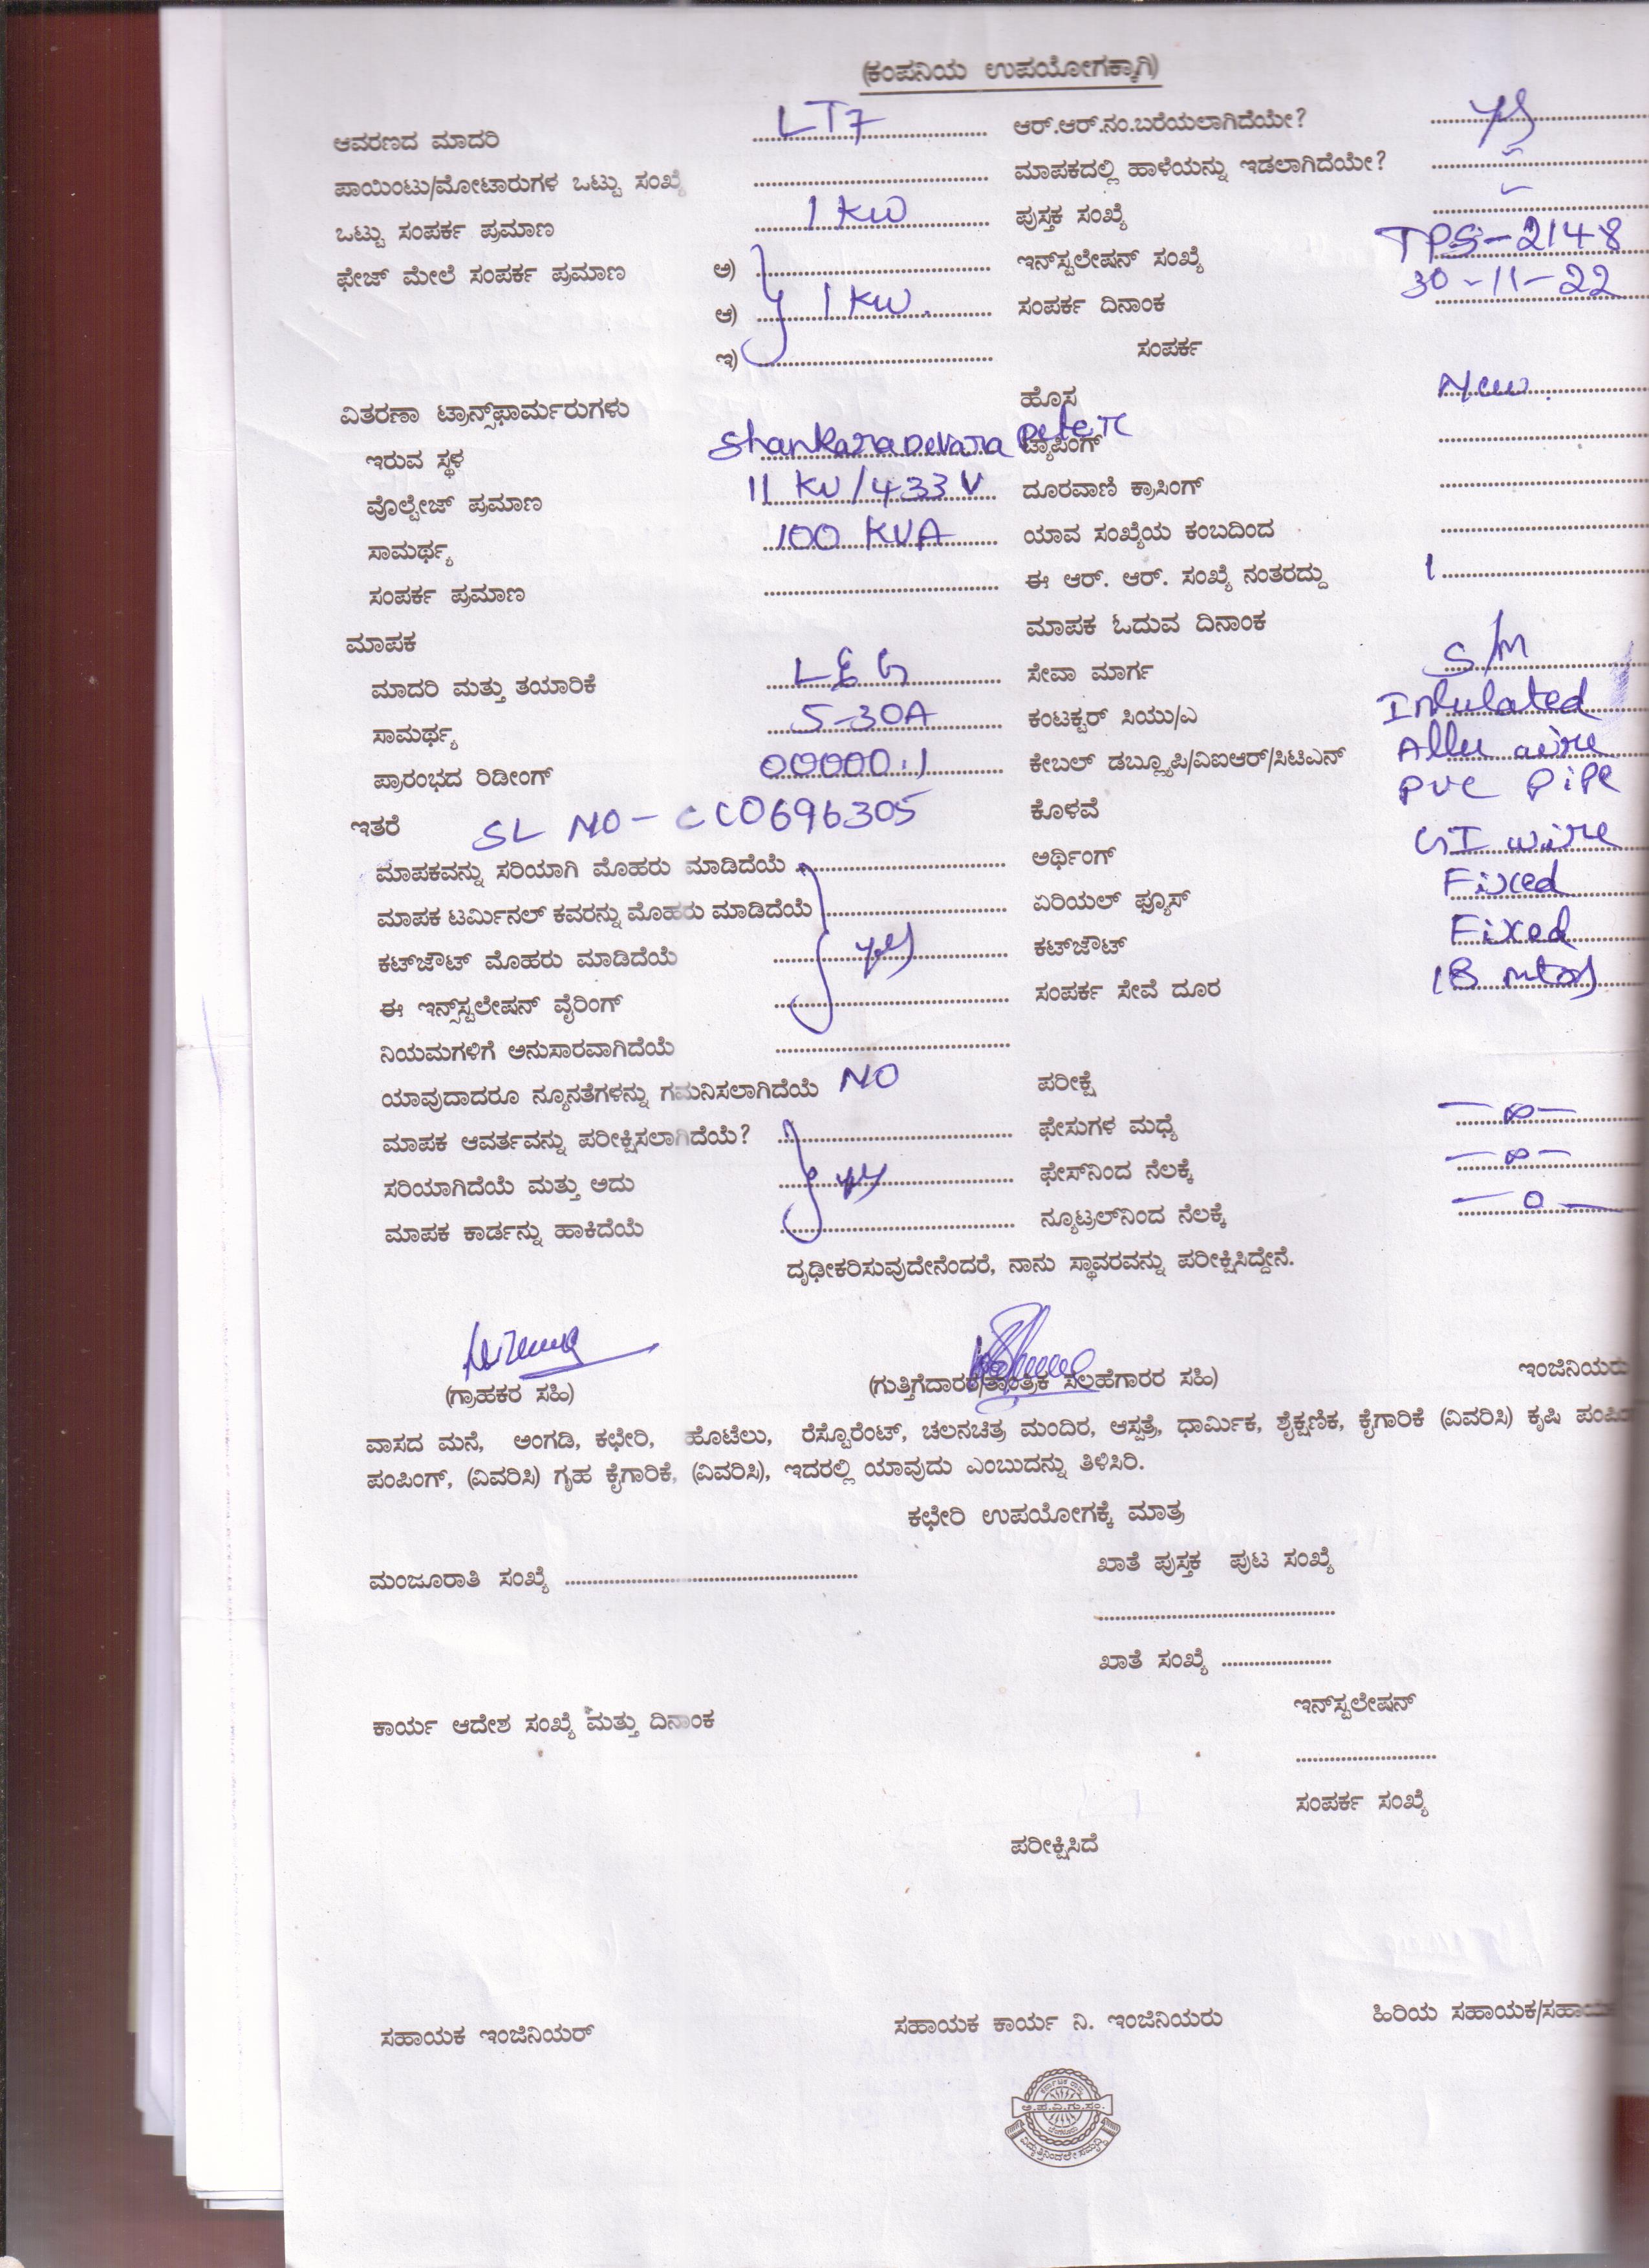 (ಕಂಪನಿಯ ಉಪಯೋಗಕ್ಕಾಗಿ)
ಆವರಣದ ಮಾದರಿ LT7 ಆರ್.ಆರ್.ನಂ.ಬರೆಯಲಾಗಿದೆಯೇ? yes
ಪಾಯಿಂಟು/ಮೋಟಾರುಗಳ ಒಟ್ಟು ಸಂಖ್ಯೆ ಮಾಪಕದಲ್ಲಿ ಹಾಳೆಯನ್ನು ಇಡಲಾಗಿದೆಯೇ?
ಒಟ್ಟು ಸಂಪರ್ಕ ಪ್ರಮಾಣ 1 KW ಪುಸ್ತಕ ಸಂಖ್ಯೆ
ಫೇಜ್ ಮೇಲೆ ಸಂಪರ್ಕ ಪ್ರಮಾಣ ಅ) ಇನ್‌ಸ್ಟಲೇಷನ್ ಸಂಖ್ಯೆ TPS-2148
ಆ) 1 KW. ಸಂಪರ್ಕ ದಿನಾಂಕ 30-11-22
ಇ) ಸಂಪರ್ಕ
ವಿತರಣಾ ಟ್ರಾನ್ಸ್‌ಫಾರ್ಮರುಗಳು ಹೊಸ New.
ಇರುವ ಸ್ಥಳ Shankaradevara pete TC ಟ್ಯಾಪಿಂಗ್
ವೊಲ್ಟೇಜ್ ಪ್ರಮಾಣ 11 KV/433 V ದೂರವಾಣಿ ಕ್ರಾಸಿಂಗ್
ಸಾಮರ್ಥ್ಯ 100 KVA ಯಾವ ಸಂಖ್ಯೆಯ ಕಂಬದಿಂದ
ಸಂಪರ್ಕ ಪ್ರಮಾಣ ಈ ಆರ್. ಆರ್. ಸಂಖ್ಯೆ ನಂತರದ್ದು 1
ಮಾಪಕ ಮಾಪಕ ಓದುವ ದಿನಾಂಕ
ಮಾದರಿ ಮತ್ತು ತಯಾರಿಕೆ L&G ಸೇವಾ ಮಾರ್ಗ S/M
ಸಾಮರ್ಥ್ಯ 5-30A ಕಂಟಕ್ಟರ್ ಸಿಯು/ಎ Insulated
ಪ್ರಾರಂಭದ ರಿಡೀಂಗ್ 00000.1 ಕೇಬಲ್ ಡಬ್ಲ್ಯೂಪಿ/ವಿಐಆರ್/ಸಿಟಿಎನ್ Allu wire
ಇತರೆ SL NO - CC0696305 ಕೊಳವೆ PVC Pipe
ಮಾಪಕವನ್ನು ಸರಿಯಾಗಿ ಮೊಹರು ಮಾಡಿದೆಯೆ ಅರ್ಥಿಂಗ್ GI wire
ಮಾಪಕ ಟರ್ಮಿನಲ್ ಕವರನ್ನು ಮೊಹರು ಮಾಡಿದೆಯೆ ಏರಿಯಲ್ ಫ್ಯೂಸ್ Fixed
ಕಟ್‌ಜೌಟ್ ಮೊಹರು ಮಾಡಿದೆಯೆ yes ಕಟ್‌ಜೌಟ್ Fixed
ಈ ಇನ್ಸ್‌ಸ್ಟಲೇಷನ್ ವೈರಿಂಗ್ ಸಂಪರ್ಕ ಸೇವೆ ದೂರ 18 mtrs
ನಿಯಮಗಳಿಗೆ ಅನುಸಾರವಾಗಿದೆಯೆ
ಯಾವುದಾದರೂ ನ್ಯೂನತೆಗಳನ್ನು ಗಮನಿಸಲಾಗಿದೆಯೆ NO ಪರೀಕ್ಷೆ
ಮಾಪಕ ಆವರ್ತವನ್ನು ಪರೀಕ್ಷಿಸಲಾಗಿದೆಯೆ? ಫೇಸುಗಳ ಮಧ್ಯೆ —∞—
ಸರಿಯಾಗಿದೆಯೆ ಮತ್ತು ಅದು yes ಫೇಸ್‌ನಿಂದ ನೆಲಕ್ಕೆ —∞—
ಮಾಪಕ ಕಾರ್ಡನ್ನು ಹಾಕಿದೆಯೆ ನ್ಯೂಟ್ರಲ್‌ನಿಂದ ನೆಲಕ್ಕೆ —0—
ದೃಢೀಕರಿಸುವುದೇನೆಂದರೆ, ನಾನು ಸ್ಥಾವರವನ್ನು ಪರೀಕ್ಷಿಸಿದ್ದೇನೆ.
(ಗ್ರಾಹಕರ ಸಹಿ) (ಗುತ್ತಿಗೆದಾರರ/ತಾಂತ್ರಿಕ ಸಲಹೆಗಾರರ ಸಹಿ) ಇಂಜಿನಿಯರು
ವಾಸದ ಮನೆ, ಅಂಗಡಿ, ಕಛೇರಿ, ಹೊಟೆಲು, ರೆಸ್ಟೊರೆಂಟ್, ಚಲನಚಿತ್ರ ಮಂದಿರ, ಆಸ್ಪತ್ರೆ, ಧಾರ್ಮಿಕ, ಶೈಕ್ಷಣಿಕ, ಕೈಗಾರಿಕೆ (ವಿವರಿಸಿ) ಕೃಷಿ
ಪಂಪಿಂಗ್, (ವಿವರಿಸಿ) ಗೃಹ ಕೈಗಾರಿಕೆ, (ವಿವರಿಸಿ), ಇದರಲ್ಲಿ ಯಾವುದು ಎಂಬುದನ್ನು ತಿಳಿಸಿರಿ.
ಕಛೇರಿ ಉಪಯೋಗಕ್ಕೆ ಮಾತ್ರ
ಮಂಜೂರಾತಿ ಸಂಖ್ಯೆ ಖಾತೆ ಪುಸ್ತಕ ಪುಟ ಸಂಖ್ಯೆ
ಖಾತೆ ಸಂಖ್ಯೆ
ಕಾರ್ಯ ಆದೇಶ ಸಂಖ್ಯೆ ಮತ್ತು ದಿನಾಂಕ ಇನ್‌ಸ್ಟಲೇಷನ್
ಸಂಪರ್ಕ ಸಂಖ್ಯೆ
ಪರೀಕ್ಷಿಸಿದೆ
ಸಹಾಯಕ ಇಂಜಿನಿಯರ್ ಸಹಾಯಕ ಕಾರ್ಯ ನಿ. ಇಂಜಿನಿಯರು ಹಿರಿಯ ಸಹಾಯಕ/